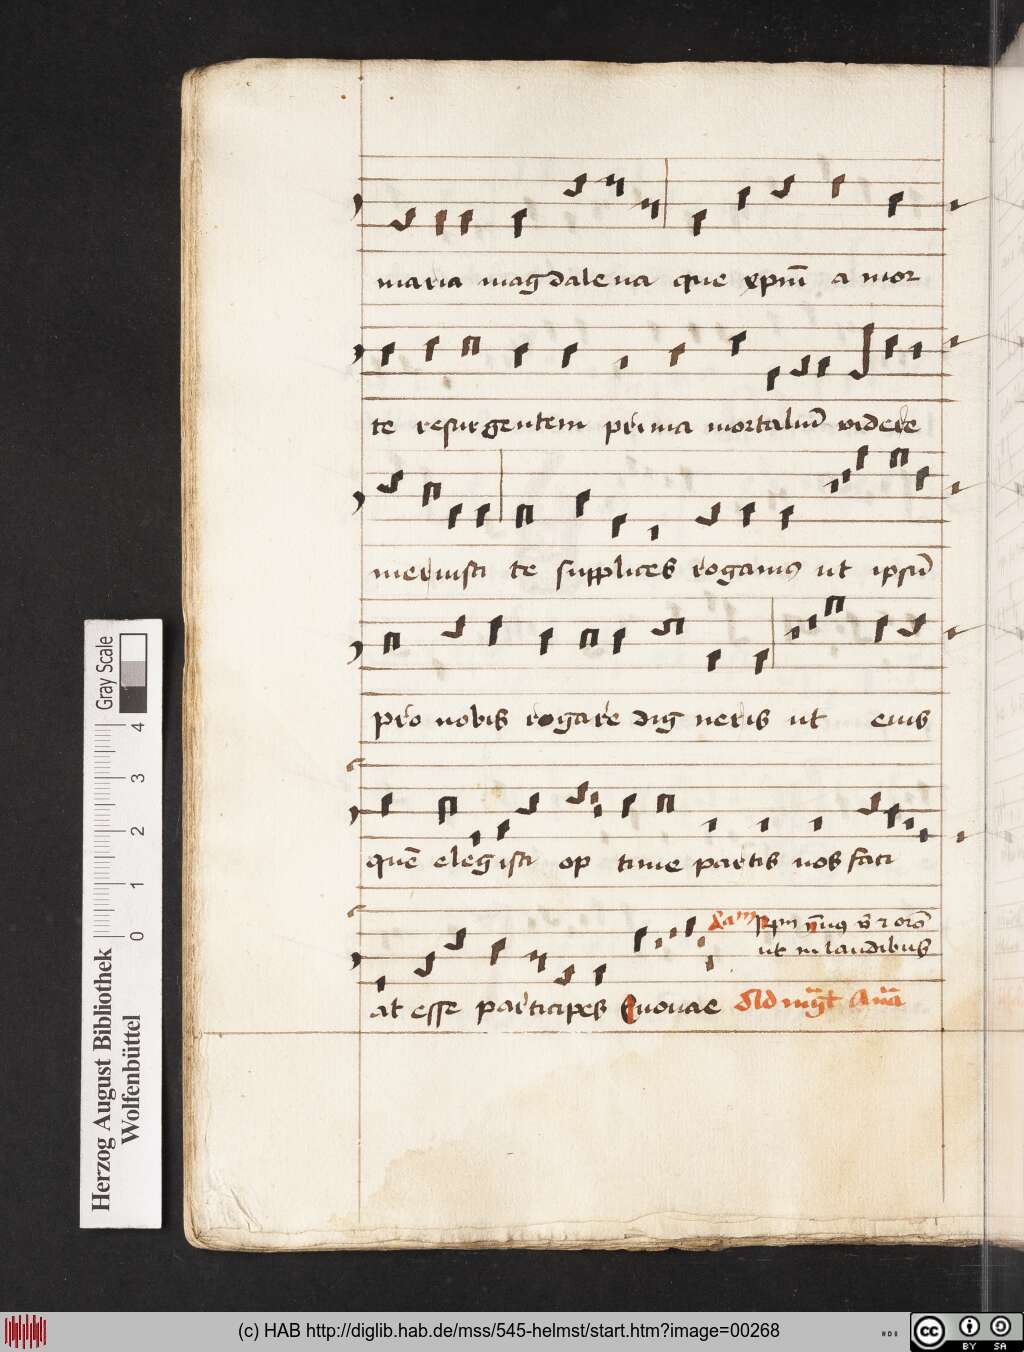 maria magdalena que xpm̄ a mor
te resurgentem prima mortaliu̅ videre
meruisti te supplices rogamus ut ipsu̅
pro nobis rogare digneris ut eius
que̅ elegisti optime partis nos faci
at esse participes Euouae
ut in laudibus
Gray Scale
0 1 2 3 4
Herzog August Bibliothek
Wolfenbüttel
(c) HAB http://diglib.hab.de/mss/545-helmst/start.htm?image=00268
cc BY SA